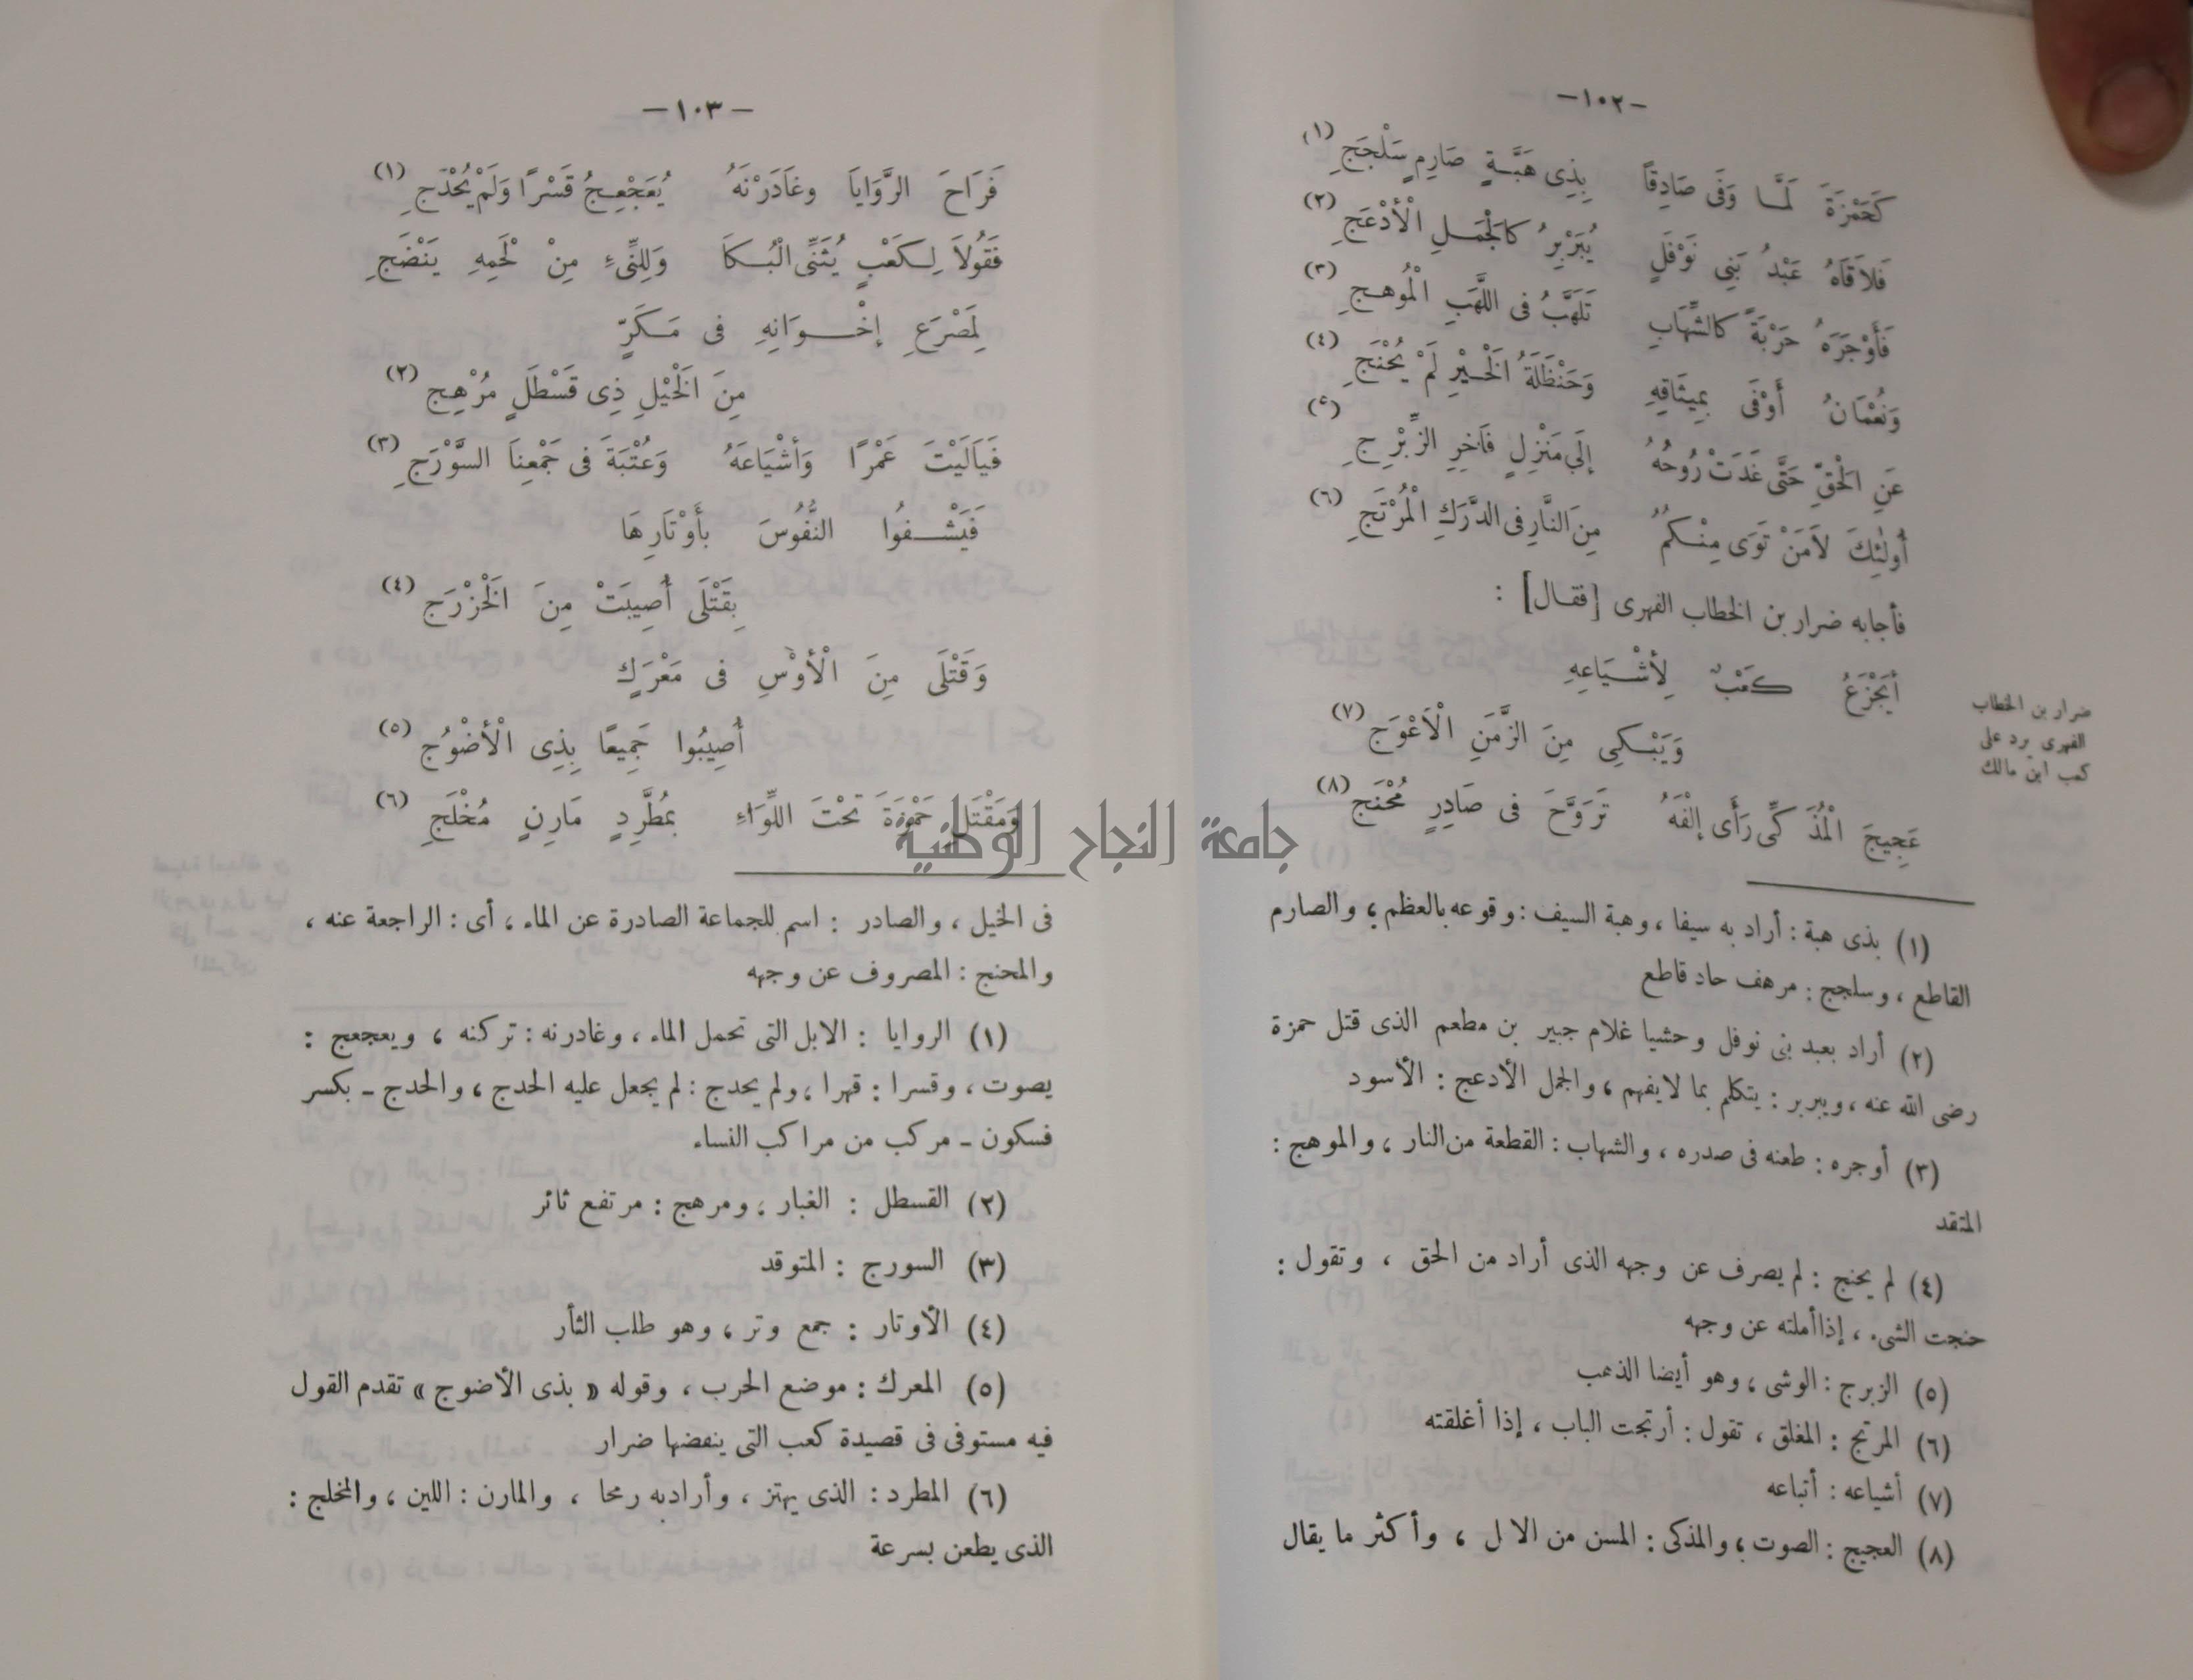 -١٠٢-
كَحَمْزَةَ لَمَّا وَفَى صَادِقاً بِذِى هَبَّةٍ صَارِمٍ سَلْجَجِ (١)
فَلاَقَاهُ عَبْدُ بَنِى نَوْفَلٍ يُبَرْبِرُ كالْجَمَلِ الْأَدْعَجِ (٢)
فَأَوْجَرَهُ حَرْبَةً كالشِّهَابِ تَلَهَّبُ فى اللَّهَبِ الْمُوهجِ (٣)
وَنُعْمَانُ أَوْفَى بِمِيثَاقِهِ وَحَنْظَلَةُ الْخَيْرِ لَمْ يُحْنَجِ (٤)
عَنِ الْحَقِّ حَتَّى غَدَتْ رُوحُهُ إلَى مَنْزِلٍ فَاخِرِ الزِّبْرِجِ (٥)
أُولٰئِكَ لاَمَنْ ثَوَى مِنْكمُ مِنَ النَّارِ فى الدَّرَكِ الْمُرْتَجِ (٦)
فأجابه ضرار بن الخطاب الفهرى [فقال] :
أيَجْزَعُ كَعْبٌ لِأشْيَاعِهِ
وَيَبْكِى مِنَ الزَّمَنِ الْأَعْوَجِ (٧)
عَجِيجَ الْمُذَكِّى رَأَى إلْفَهُ تَرَوَّحَ فى صَادِرٍ مُحْنَجِ (٨)
ضرار بن الخطاب
الفهرى يرد على
كعب ابن مالك
(١) بذى هبة : أراد به سيفا ، وهبة السيف : وقوعه بالعظم ، والصارم
القاطع ، وسلجج : مرهف حاد قاطع
(٢) أراد بعبد بنى نوفل وحشيا غلام جبير بن مطعم الذى قتل حمزة
رضى الله عنه ، ويبربر : يتكلم بما لايفهم ، والجمل الأدعج : الأسود
(٣) أوجره : طعنه فى صدره ، والشهاب : القطعة من النار ، والموهج :
المتقد
(٤) لم يحنج : لم يصرف عن وجهه الذى أراد من الحق ، وتقول :
حنجت الشىء ، إذا أملته عن وجهه
(٥) الزبرج : الوشى ، وهو أيضا الذهب
(٦) المرتج : المغلق ، تقول : أرتجت الباب ، إذا أغلقته
(٧) أشياعه : أتباعه
(٨) العجيج : الصوت ، والمذكى : المسن من الا ل ، وأكثر ما يقال
-١٠٣-
فَرَاحَ الرَّوَاياَ وغاَدَرْنَهُ يُعَجْعِجُ قَسْرًا وَلَمْ يُحْدَجِ (١)
فَقُولاَ لِكَعْبٍ يُثَنِّى الْبُكاَ وَلِلنِّىءِ مِنْ لْحَمِهِ يَنْضَجِ
لِمَصْرَعِ إخْوَانِهِ فى مَكَرٍّ
مِنَ الْخَيْلِ ذِى قَسْطَلٍ مُرْهِجِ (٢)
فَيَالَيْتَ عَمْرًا وَأشْيَاعَهُ وَعُتْبَةَ فى جَمْعِناَ السَّوْرَجِ (٣)
فَيَشْفُوا النُّفُوسَ بأَوْتَارِهَا
بِقَتْلَى أُصِيبَتْ مِنَ الْخَزْرَجِ (٤)
وَقَتْلَى مِنَ الْأوْسِ فى مَعْرَكٍ
أُصِيبُوا جَمِيعًا بِذِى الْأضْوُجِ (٥)
وَمَقْتَلِ حَمْزَةَ تَحْتَ اللِّوَاءِ بمُطَّرِدٍ مَارِنٍ مُخْلَجِ (٦)
فى الخيل ، والصادر : اسم للجماعة الصادرة عن الماء ، أى : الراجعة عنه ،
والمحنج : المصروف عن وجهه
(١) الروايا : الابل التى تحمل الماء ، وغادرنه : تركنه ، ويعجعج :
يصوت ، وقسرا : قهرا ، ولم يحدج : لم يجعل عليه الحدج ، والحدج - بكسر
فسكون - مركب من مراكب النساء
(٢) القسطل : الغبار ، ومرهج : مرتفع ثائر
(٣) السورج : المتوقد
(٤) الأوتار : جمع وتر ، وهو طلب الثأر
(٥) المعرك : موضع الحرب ، وقوله « بذى الأضوج » تقدم القول
فيه مستوفى فى قصيدة كعب التى ينقضها ضرار
(٦) المطرد : الذى يهتز ، وأراد به رمحا ، والمارن : اللين ، والمخلج :
الذى يطعن بسرعة
جامعة النجاح الوطنية